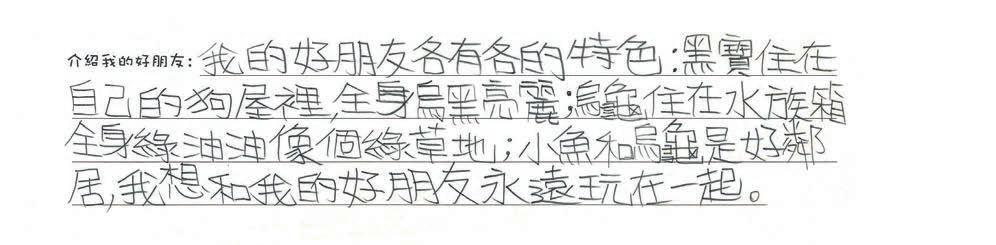 介紹我的好朋友:我的好朋友各有各的特色:黑寶住在
自己的狗屋裡,全身烏黑亮麗;烏龜住在水族箱
全身綠油油像個綠草地;小魚和烏龜是好鄰
居,我想和我的好朋友永遠玩在一起。